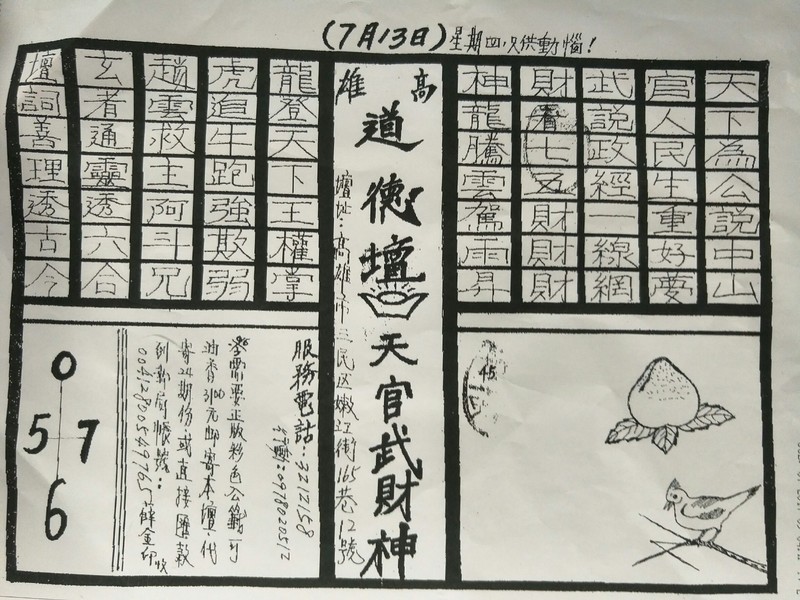 (7月13日)星期四,只供動惱!
天下為公說中山
官人民生重好夢
武說政經一線網
財看七五財財財
神龍騰雲駕雨昇
高雄
道德壇
天官武財神
壇址:高雄市三民区嫩江街165巷12號
龍登天下王權掌
虎追牛跑強敗弱
趙雲救主阿斗兄
玄者通靈透六合
壇詞善理透古今
45
服務電話:3212158
行動:0978020512
需要正版彩色公籤可
油香3100元郵寄本壇,代
寄24期份或直接匯款
帳號:
00412800549765薛金印收
0
5 7
6